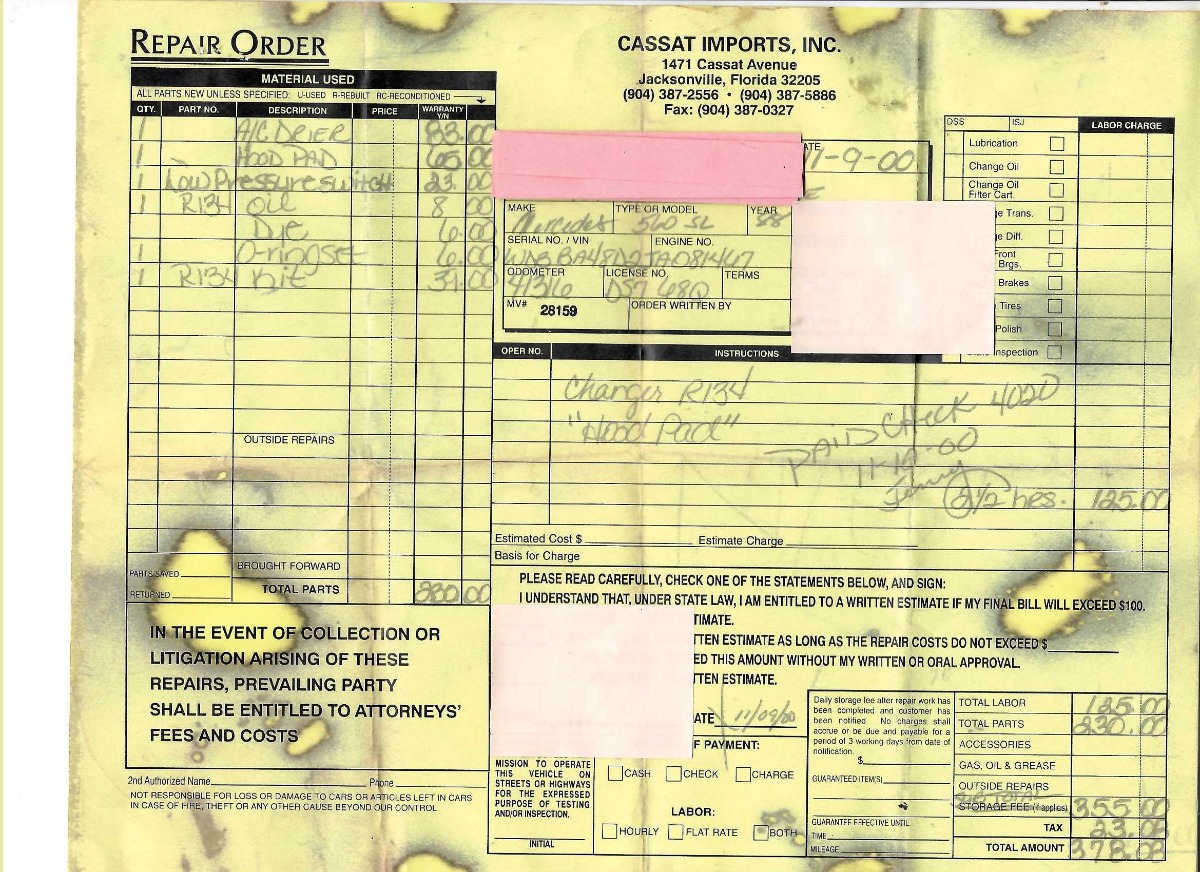 REPAIR ORDER
CASSAT IMPORTS, INC.
1471 Cassat Avenue
Jacksonville, Florida 32205
(904) 387-2556 • (904) 387-5886
Fax: (904) 387-0327
MATERIAL USED
ALL PARTS NEW UNLESS SPECIFIED: U-USED R-REBUILT RC-RECONDITIONED
QTY. PART NO. DESCRIPTION PRICE WARRANTY Y/N
1 A/C DRIER 83.00
1 HOOD PAD 65.00
1 Low Pressure switch 23.00
1 R134 oil 8 00
Die 6.00
1 O-ring SET 6.00
1 R134 Kit 39.00
OUTSIDE REPAIRS
BROUGHT FORWARD
PARTS SAVED
RETURNED
TOTAL PARTS 230.00
ATE 11-9-00
MAKE TYPE OR MODEL YEAR
Mercedes 560 SL 88
SERIAL NO. / VIN ENGINE NO.
ODOMETER LICENSE NO. TERMS
41316
MV# 28159 ORDER WRITTEN BY
DSS ISJ LABOR CHARGE
Lubrication
Change Oil
Change Oil Filter Cart.
ge Trans.
ge Diff.
Front Brgs.
Brakes
Tires
Polish
Inspection
OPER NO. INSTRUCTIONS
Changer R134
"Hood Pad"
PAID CHECK 4020
11-10-00
2 1/2 hrs. 125.00
Estimated Cost $ Estimate Charge
Basis for Charge
PLEASE READ CAREFULLY, CHECK ONE OF THE STATEMENTS BELOW, AND SIGN:
I UNDERSTAND THAT, UNDER STATE LAW, I AM ENTITLED TO A WRITTEN ESTIMATE IF MY FINAL BILL WILL EXCEED $100.
TIMATE.
TTEN ESTIMATE AS LONG AS THE REPAIR COSTS DO NOT EXCEED $
ED THIS AMOUNT WITHOUT MY WRITTEN OR ORAL APPROVAL.
TTEN ESTIMATE.
ATE 11/09/00
IN THE EVENT OF COLLECTION OR
LITIGATION ARISING OF THESE
REPAIRS, PREVAILING PARTY
SHALL BE ENTITLED TO ATTORNEYS'
FEES AND COSTS
2nd Authorized Name Phone
NOT RESPONSIBLE FOR LOSS OR DAMAGE TO CARS OR ARTICLES LEFT IN CARS
IN CASE OF FIRE, THEFT OR ANY OTHER CAUSE BEYOND OUR CONTROL
MISSION TO OPERATE
THIS VEHICLE ON
STREETS OR HIGHWAYS
FOR THE EXPRESSED
PURPOSE OF TESTING
AND/OR INSPECTION.
INITIAL
F PAYMENT:
CASH CHECK CHARGE
LABOR:
HOURLY FLAT RATE BOTH
Daily storage fee after repair work has
been completed and customer has
been notified. No charges shall
accrue or be due and payable for a
period of 3 working days from date of
notification.
$
GUARANTEED ITEM(S)
GUARANTEE EFFECTIVE UNTIL:
TIME
MILEAGE
TOTAL LABOR 125.00
TOTAL PARTS 230.00
ACCESSORIES
GAS, OIL & GREASE
OUTSIDE REPAIRS
SUB TOTAL
STORAGE FEE (if applies) 355.00
TAX 23.08
TOTAL AMOUNT 378.08